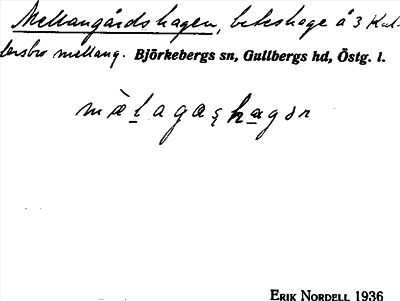 Mellangårdshagen, beteshage å 3 Kul-
lersbro mellang. Björkebergs sn, Gullbergs hd, Östg. l.
ERIK NORDELL 1936